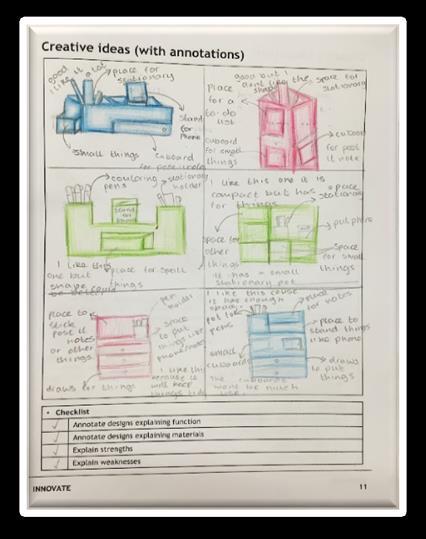 Creative ideas (with annotations)
good
I like it a lot
place for
stationary
Stand
for
Phone
small things
cuboard
for post it notes
good but I
dont like the
shape
space for
stationary
place
for a
to-do
list
cuboard
for small
things
cuboard
for post
it note
colouring
pens
stationary
holder
Stand
for
phone
I like this
one but
shape could
be better
place for small
things
I like this one it is
compact but has
for things
space
stationary
put phone
space for
other
things
space
for small
things
it has a small
stationary pot
place to
stick
post it
notes
or other
things
pen
holder
space
to put
things like
phone
draws for things
I like this
because it
will keep
things tidy
I like this cause
it has enough
space
pot for
pens
place
for notes
place to
stand things
like phone
small
cuboards
draws
to put
things
The cuboards
wont be much
use
• Checklist
✓ Annotate designs explaining function
✓ Annotate designs explaining materials
✓ Explain strengths
✓ Explain weaknesses
INNOVATE
11